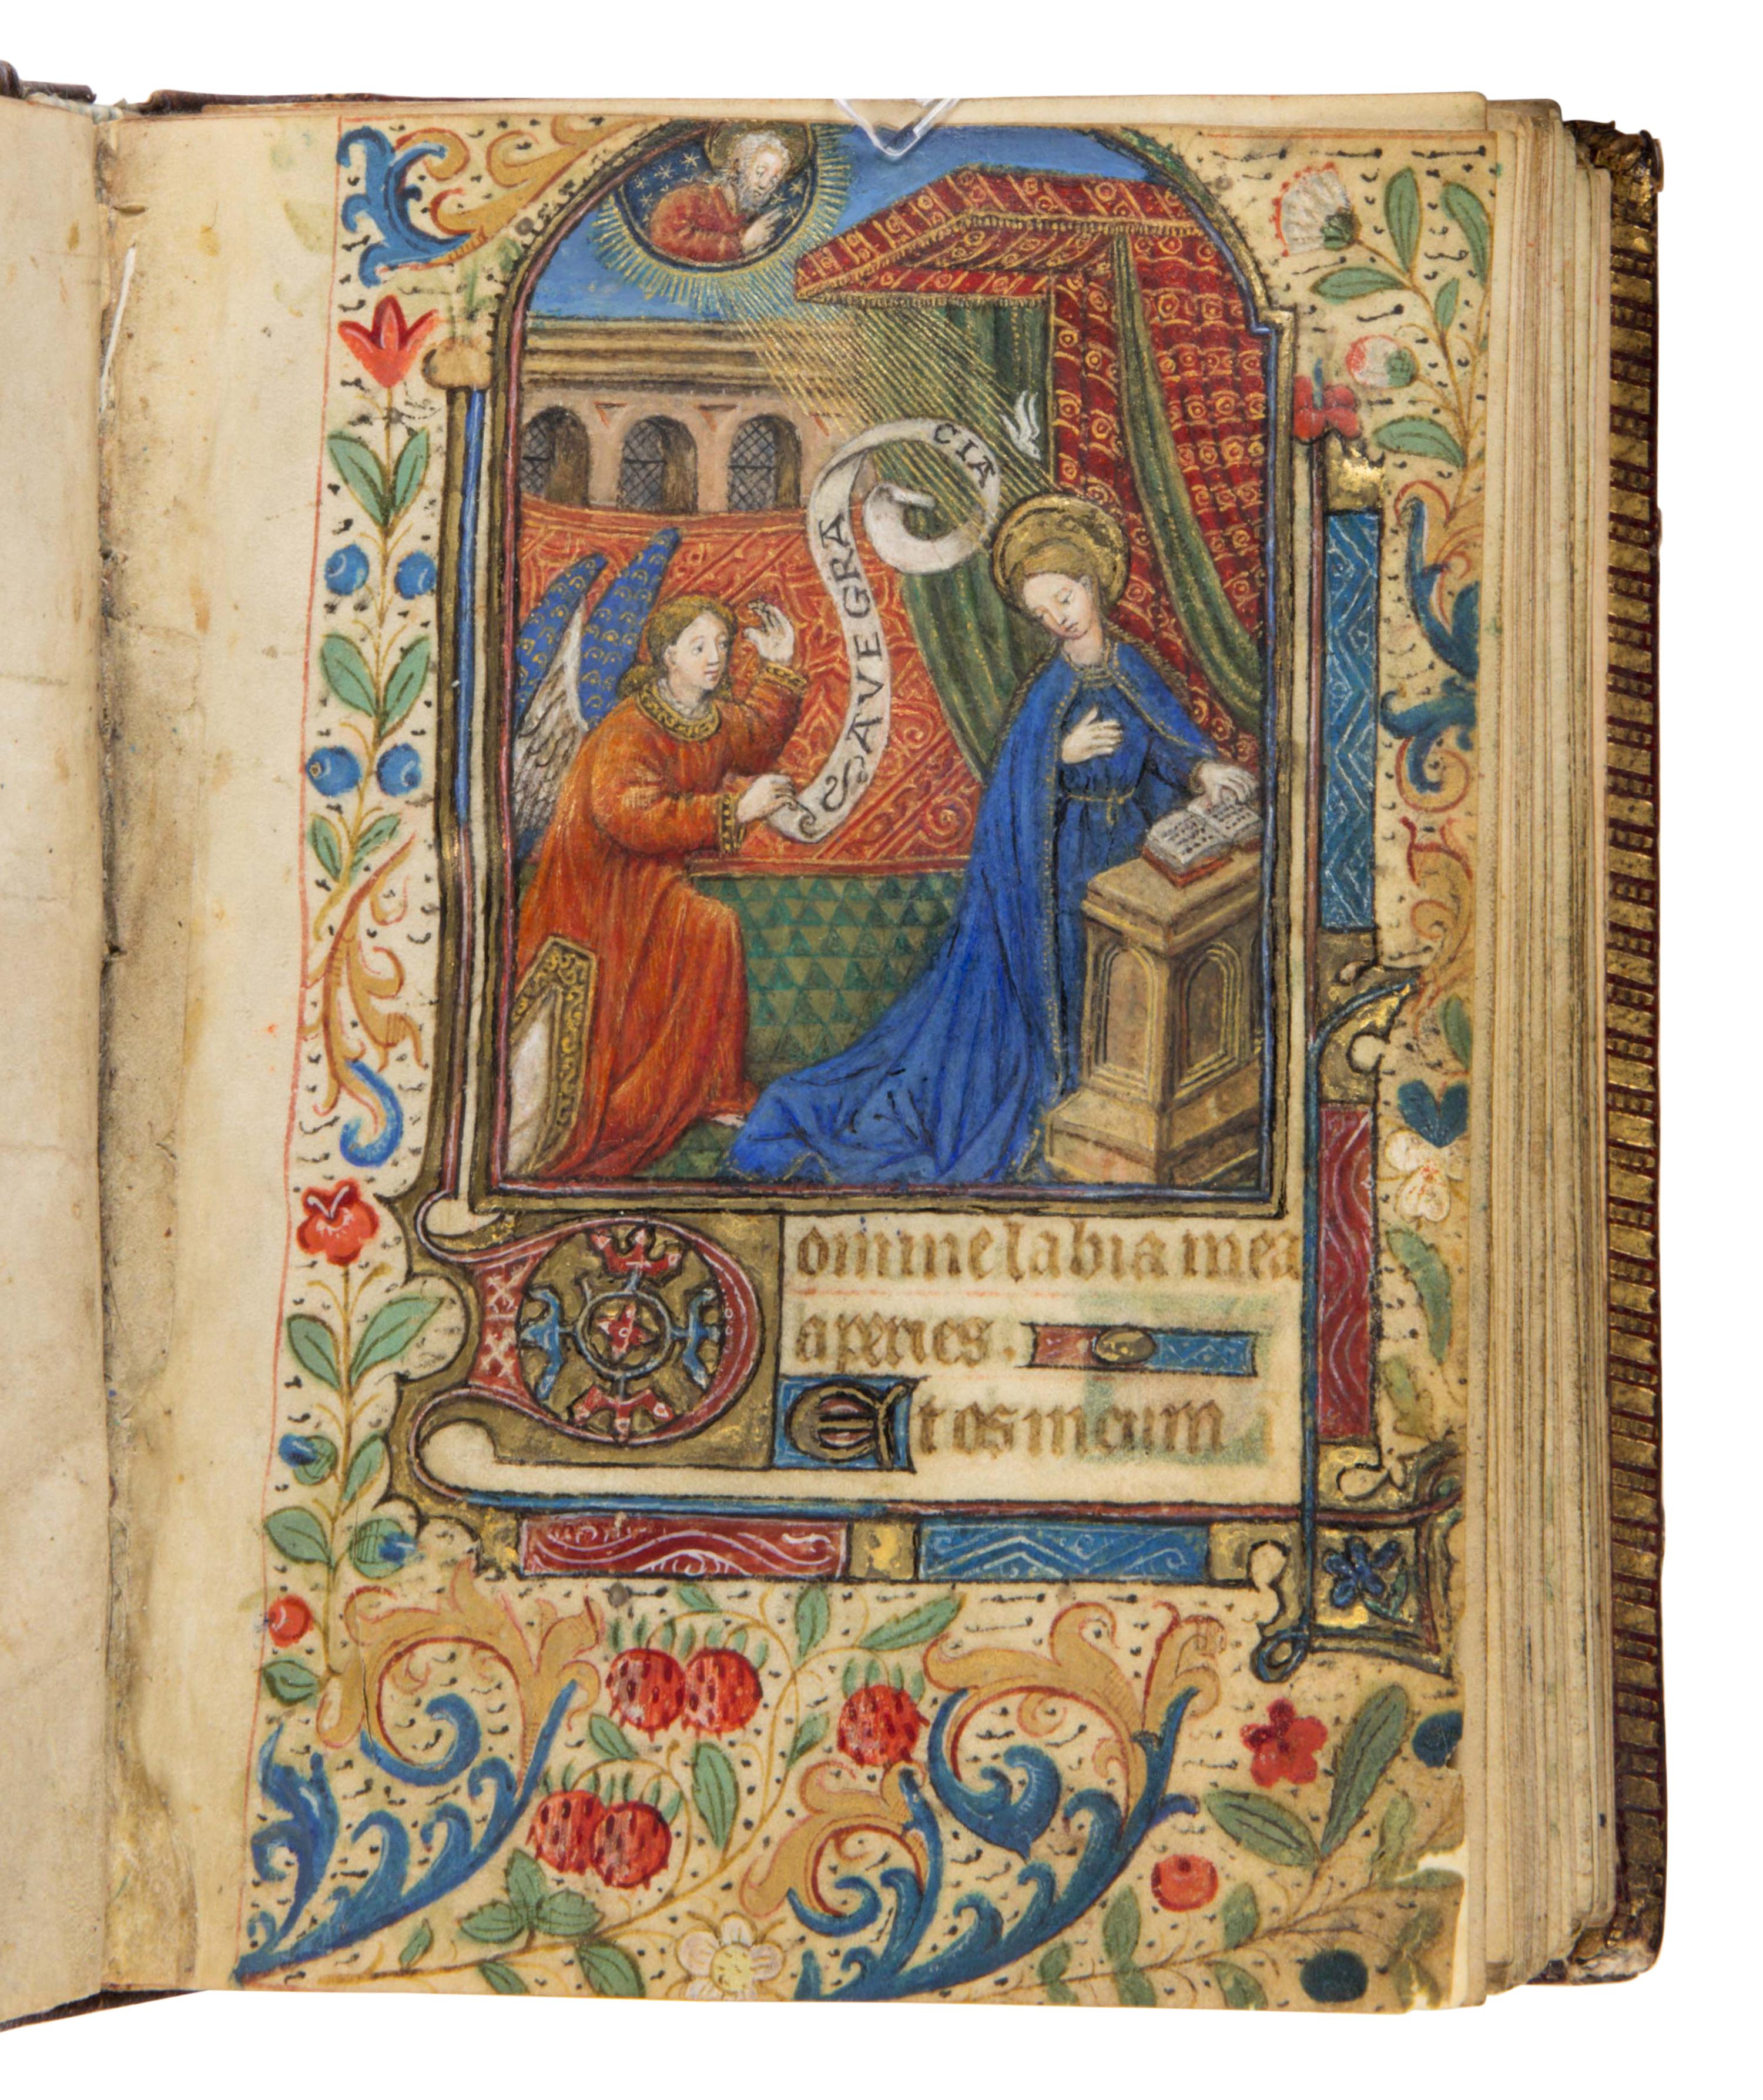 AVE GRA
CIA
Domine labia mea
aperies.
Et os meum